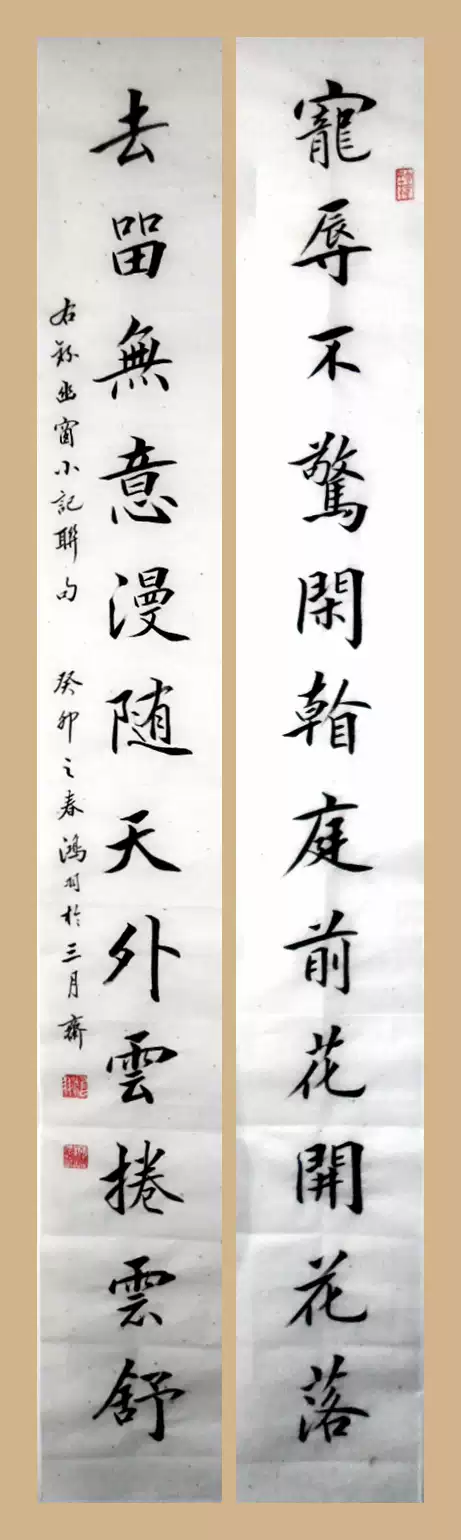 寵辱不驚閑看庭前花開花落
去留無意漫随天外雲捲雲舒
右錄幽窗小記聯句 癸卯之春鴻羽於三月齋